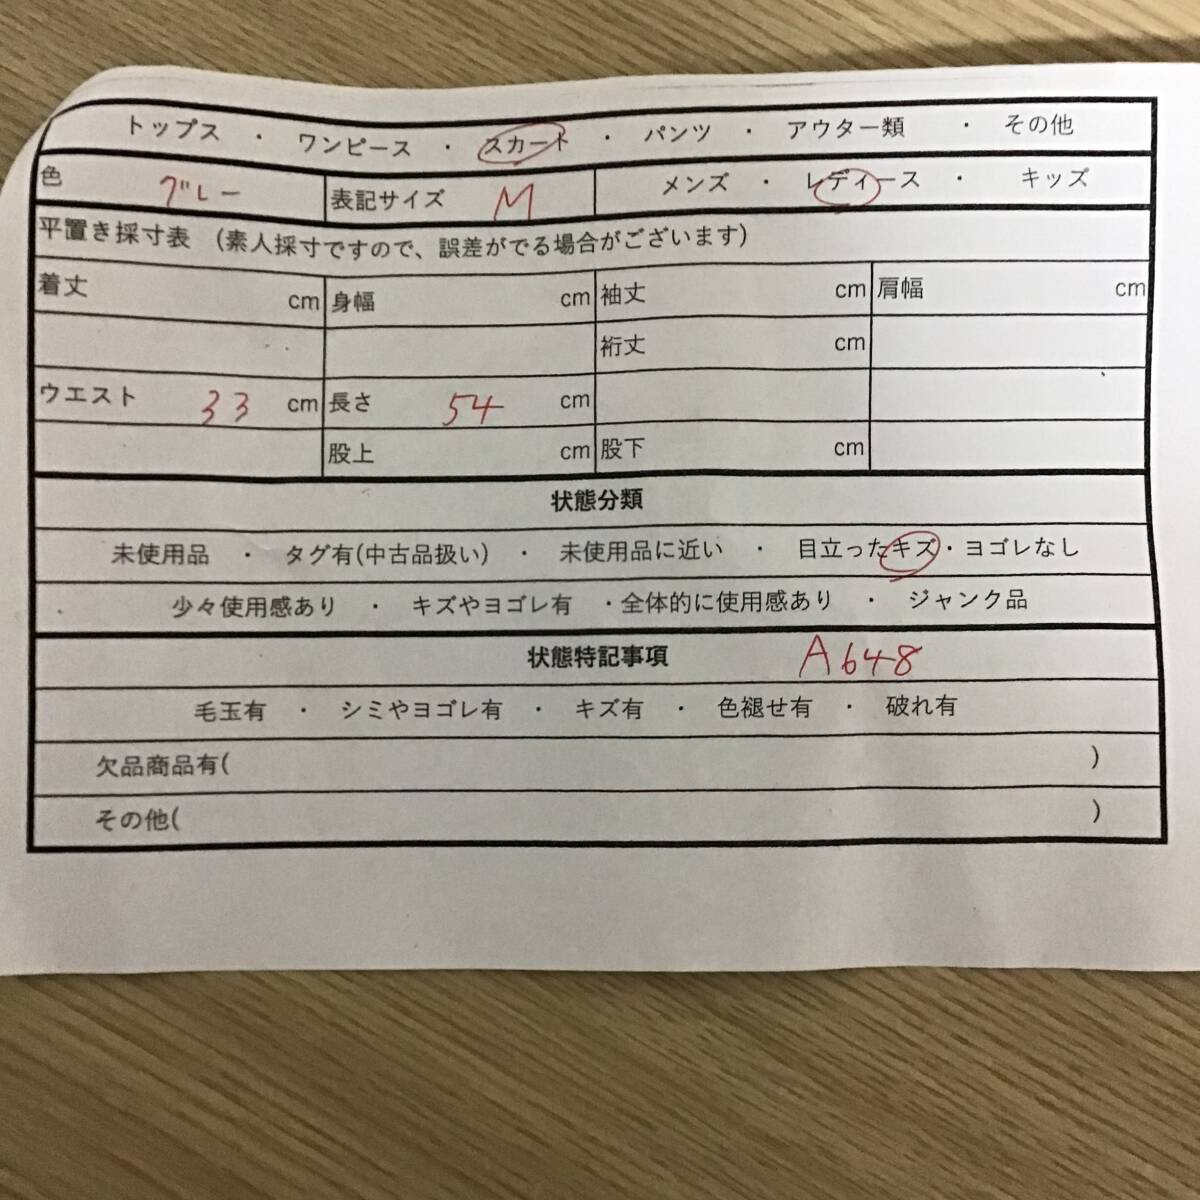 トップス ・ ワンピース ・ スカート ・ パンツ ・ アウター類 ・ その他
色 グレー 表記サイズ M メンズ ・ レディース ・ キッズ
平置き採寸表 (素人採寸ですので、誤差がでる場合がございます)
着丈 cm 身幅 cm 袖丈 cm 肩幅 cm
裄丈 cm
ウエスト 33 cm 長さ 54 cm
股上 cm 股下 cm
状態分類
未使用品 ・ タグ有(中古品扱い) ・ 未使用品に近い ・ 目立ったキズ・ヨゴレなし
少々使用感あり ・ キズやヨゴレ有 ・全体的に使用感あり ・ ジャンク品
状態特記事項 A648
毛玉有 ・ シミやヨゴレ有 ・ キズ有 ・ 色褪せ有 ・ 破れ有
欠品商品有( )
その他( )